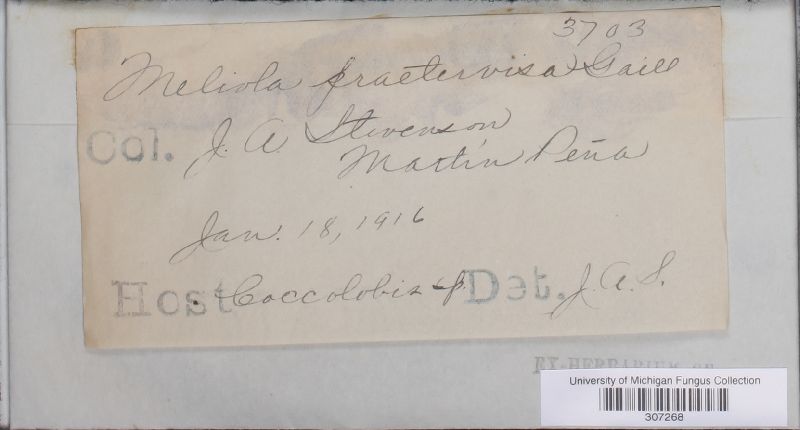 3703
Meliola praetervisa Gaill
Col. J. A. Stevenson
Martín Peña
Jan. 18, 1916
Host Coccolobis sp. Det. J. A. S.
EX-HERBARIUM OF
University of Michigan Fungus Collection
307268